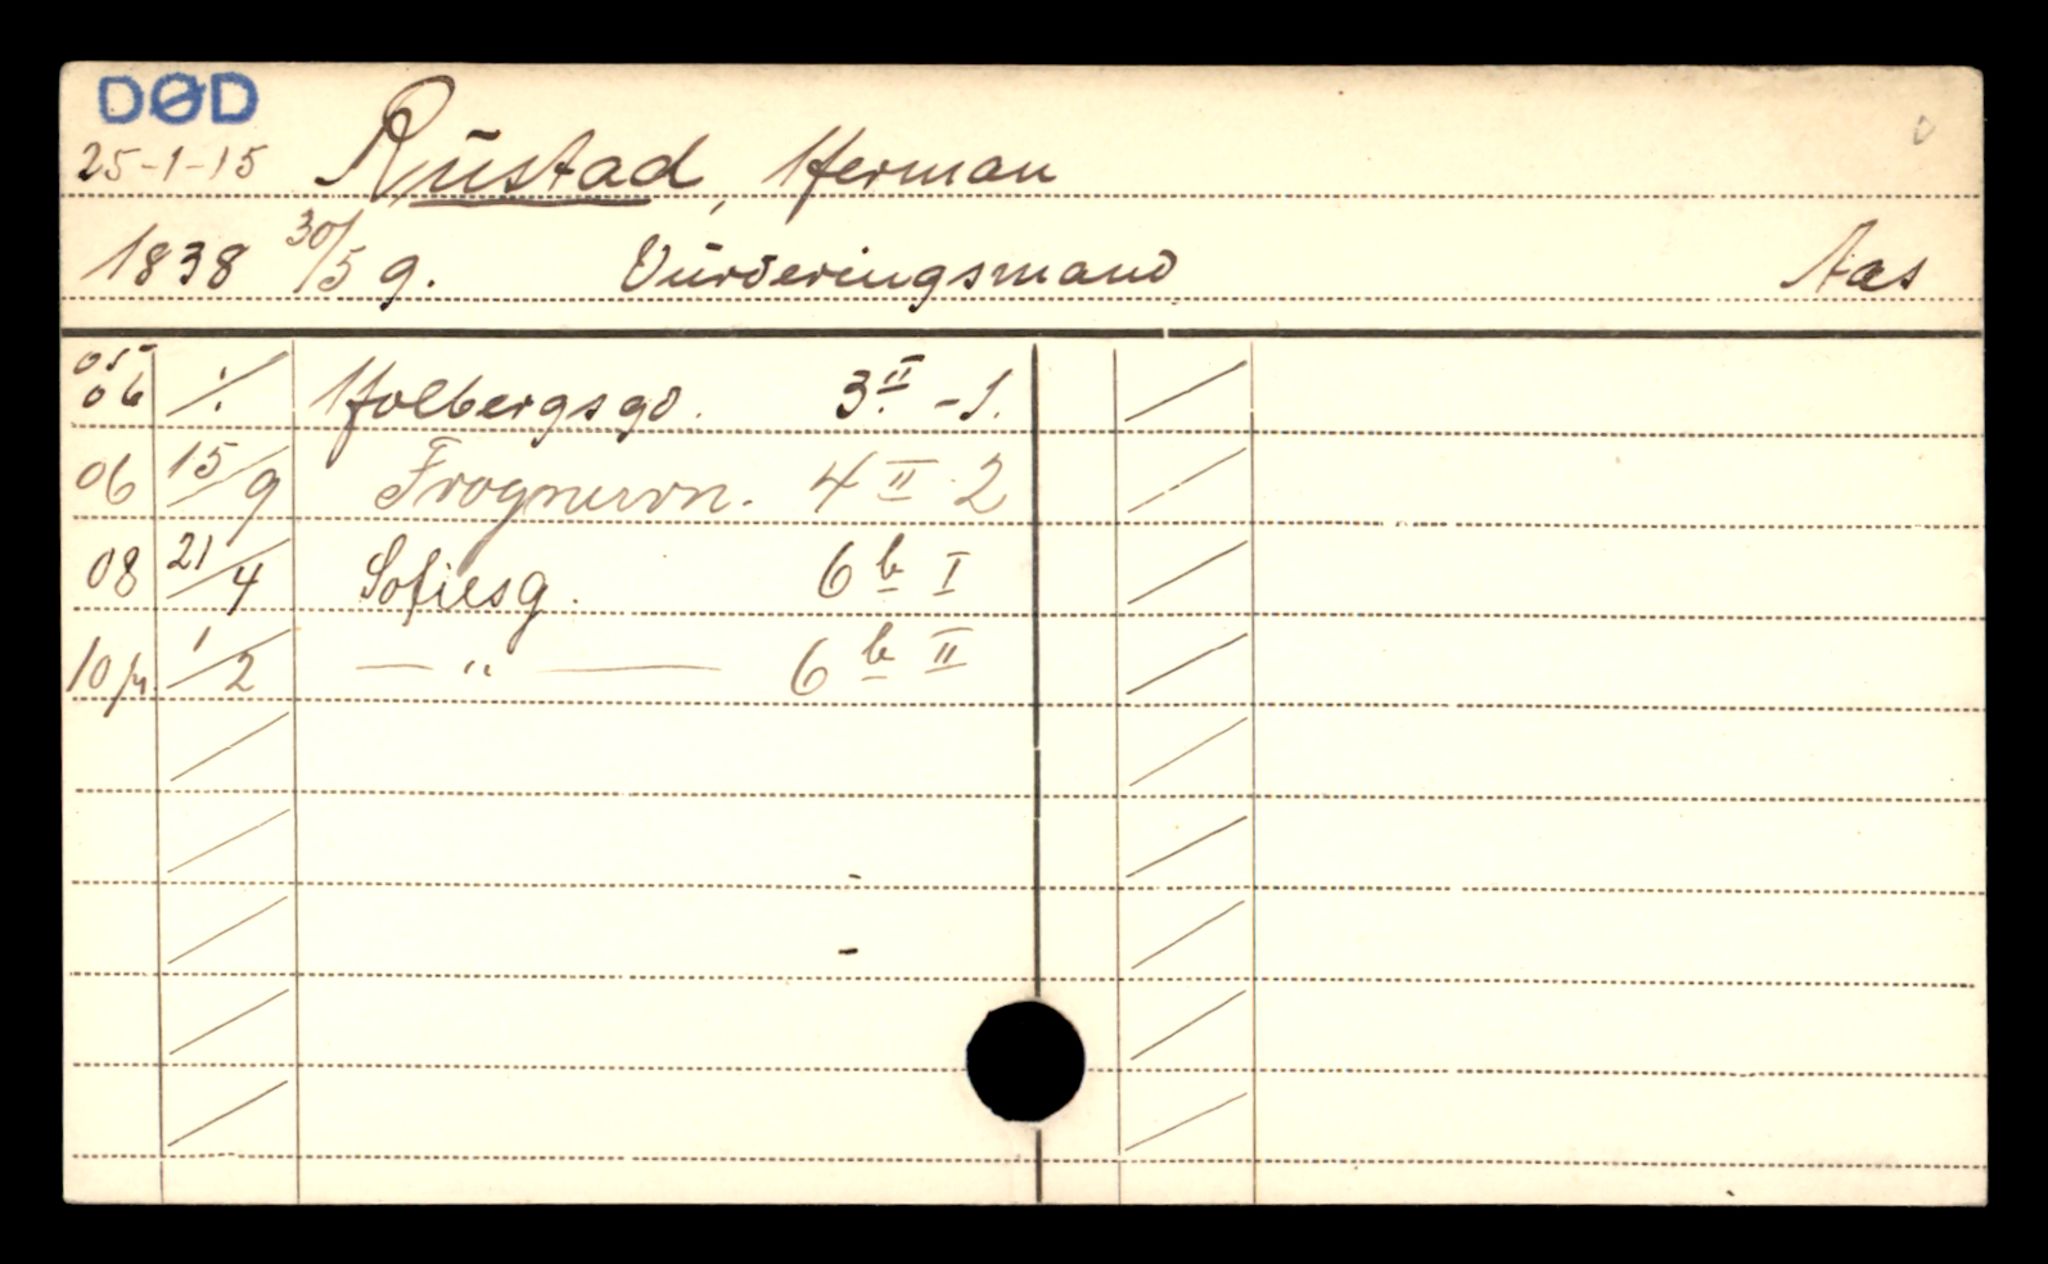 DØD
25-1-15 Rustad, Herman
1838 30/5 g. Vurderingsmand Aas
05
06 ./. Holbergsgd. 3 II - 1.
06 15/9 Frognervn. 4 II 2
08 21/4 Sofiesg. 6 b I
10 1/2 — " — 6 b II